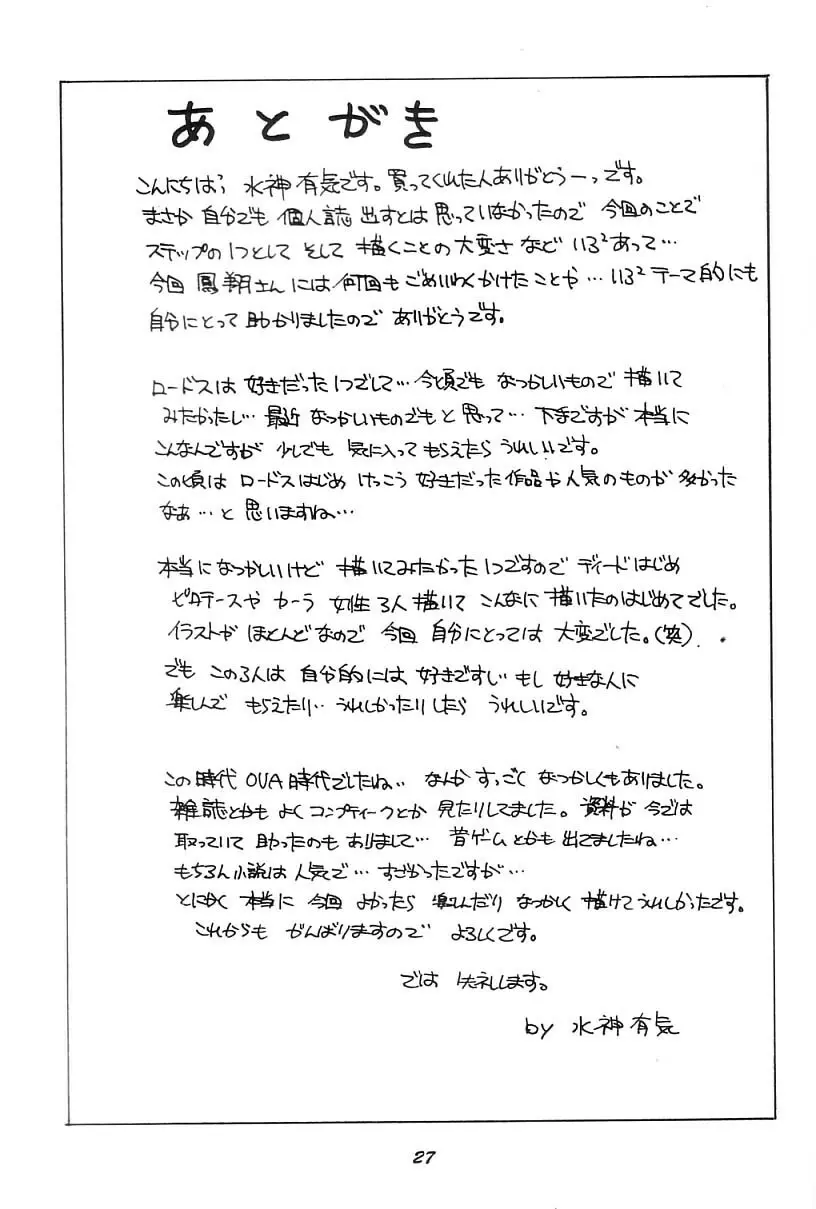 あとがき
こんにちはっ 水神有気です。買ってくれた人ありがとうーっです。
まさか 自分でも 個人誌 出すとは 思っていなかったので 今回のことで
ステップの1つとして そして 描くことの 大変さ など いろ²あって…
今回 鳳翔さん には 何回も ごめいわく かけた ことや… いろ² テーマ的にも
自分にとって 助かりましたので ありがとうです。
ロードスは 好きだった 1つでして… 今頃でも なつかしいもので 描いて
みたかったし… 最近 なつかしいものでもと 思って… 下手ですが 本当に
こんなんですが 少しでも 気に入って もらえたら うれしいです。
この頃は ロードスはじめ けっこう 好きだった 作品や 人気のものが 多かった
なぁ…と 思いますね…
本当に なつかしいけど 描いてみたかった 1つですので ディードはじめ
ピロテースや カーラ 女性3人 描いて こんなに 描いたのはじめてでした。
イラストが ほとんどなので 今回 自分にとっては 大変でした。(笑)
でも この3人は 自分的には 好きですし もし 好きな人に
楽しんで もらえたり‥ うれしかったりしたら うれしいです。
この時代 OVA時代でしたね‥ なんか すっごく なつかしくもありました。
雑誌とかも よく コンプティークとか 見たりしてました。資料が 今では
取っていて 助ったのも ありまして… 昔ゲームとかも 出てましたね…
もちろん 小説は 人気で… すごかったですが…
とにかく 本当に 今回 よかったら 楽しんだり なつかしく 描けて うれしかったです。
これからも がんばりますので よろしくです。
では 失礼します。
by 水神有気
27